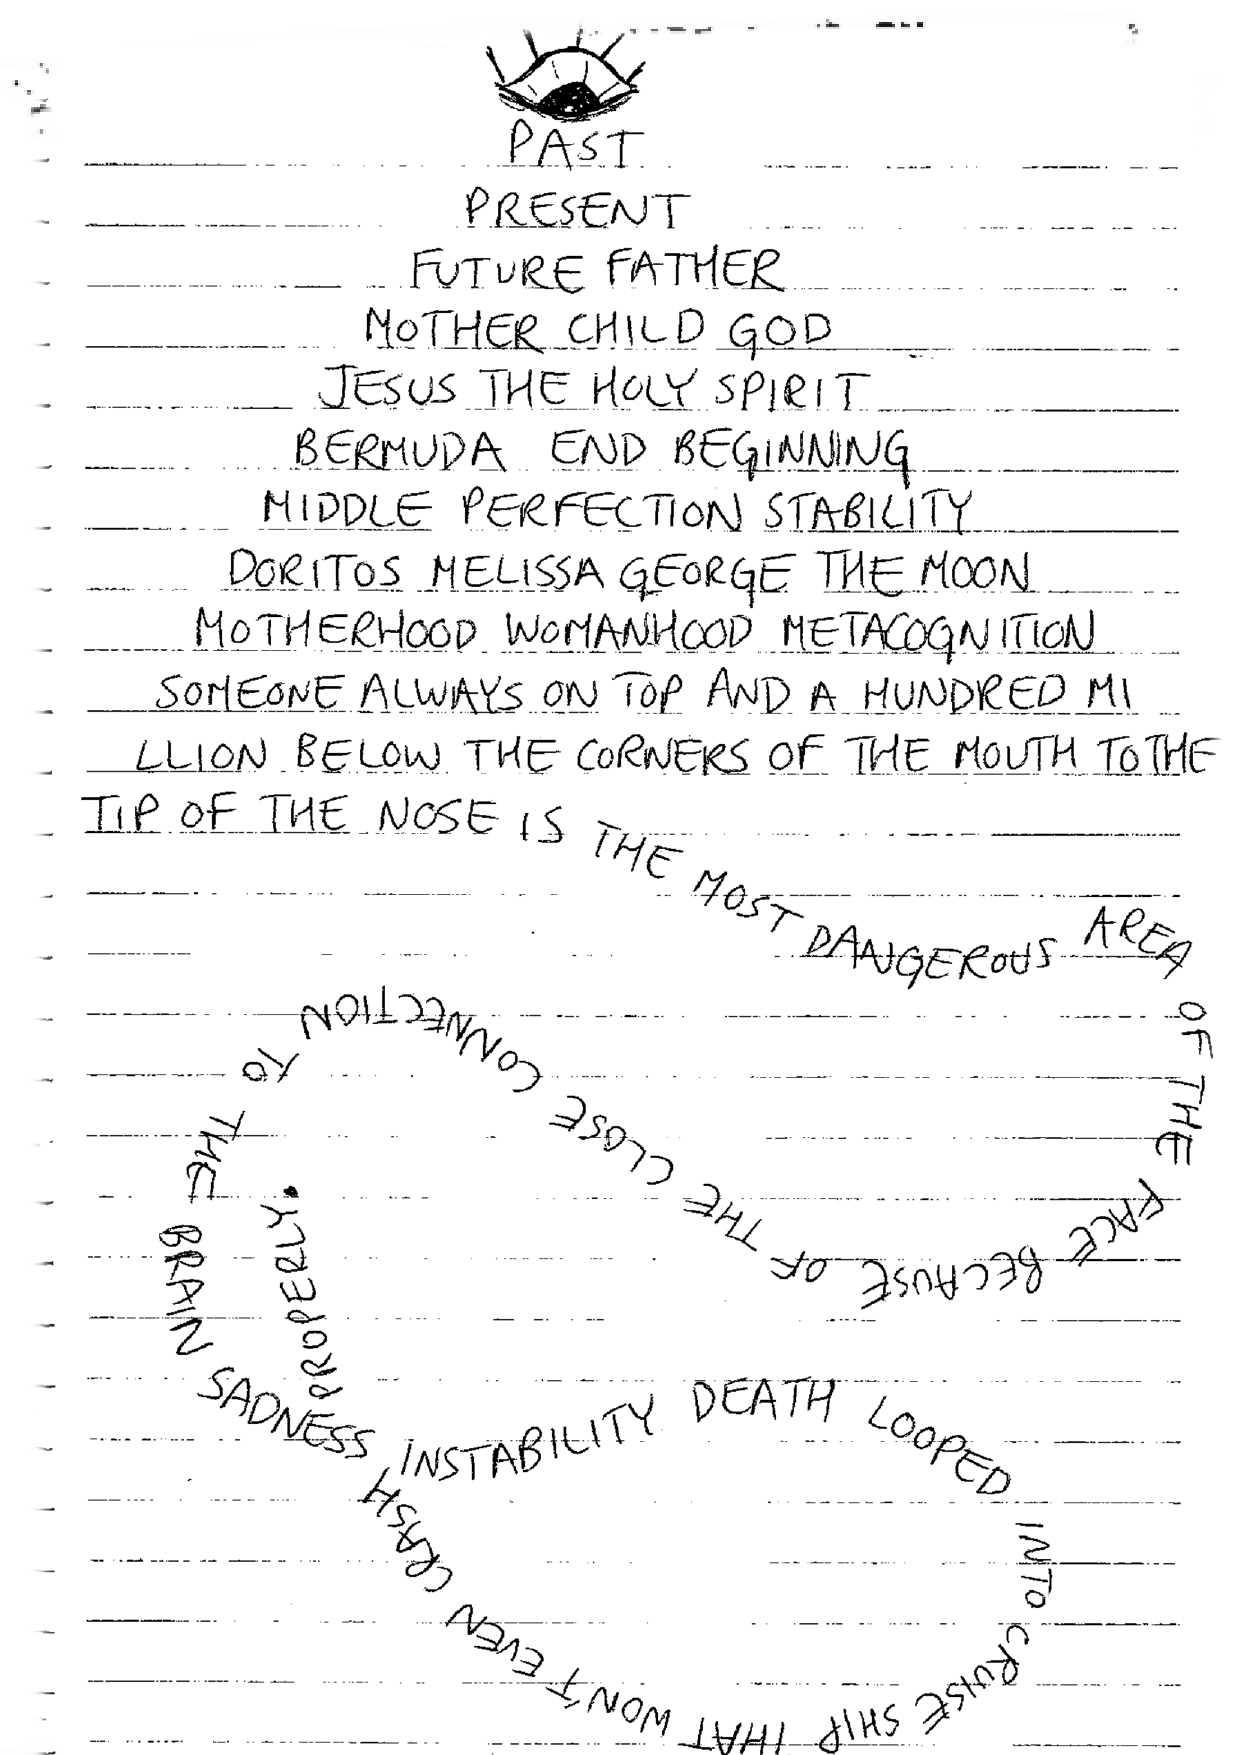 PAST
PRESENT
FUTURE FATHER
MOTHER CHILD GOD
JESUS THE HOLY SPIRIT
BERMUDA END BEGINNING
MIDDLE PERFECTION STABILITY
DORITOS MELISSA GEORGE THE MOON
MOTHERHOOD WOMANHOOD METACOGNITION
SOMEONE ALWAYS ON TOP AND A HUNDRED MI
LLION BELOW THE CORNERS OF THE MOUTH TO THE
TIP OF THE NOSE IS THE MOST DANGEROUS AREA
OF THE FACE BECAUSE OF THE CLOSE CONNECTION
TO THE BRAIN SADNESS INSTABILITY DEATH LOOPED
INTO CRUISE SHIP THAT WON'T EVEN CRASH
PROPERLY.